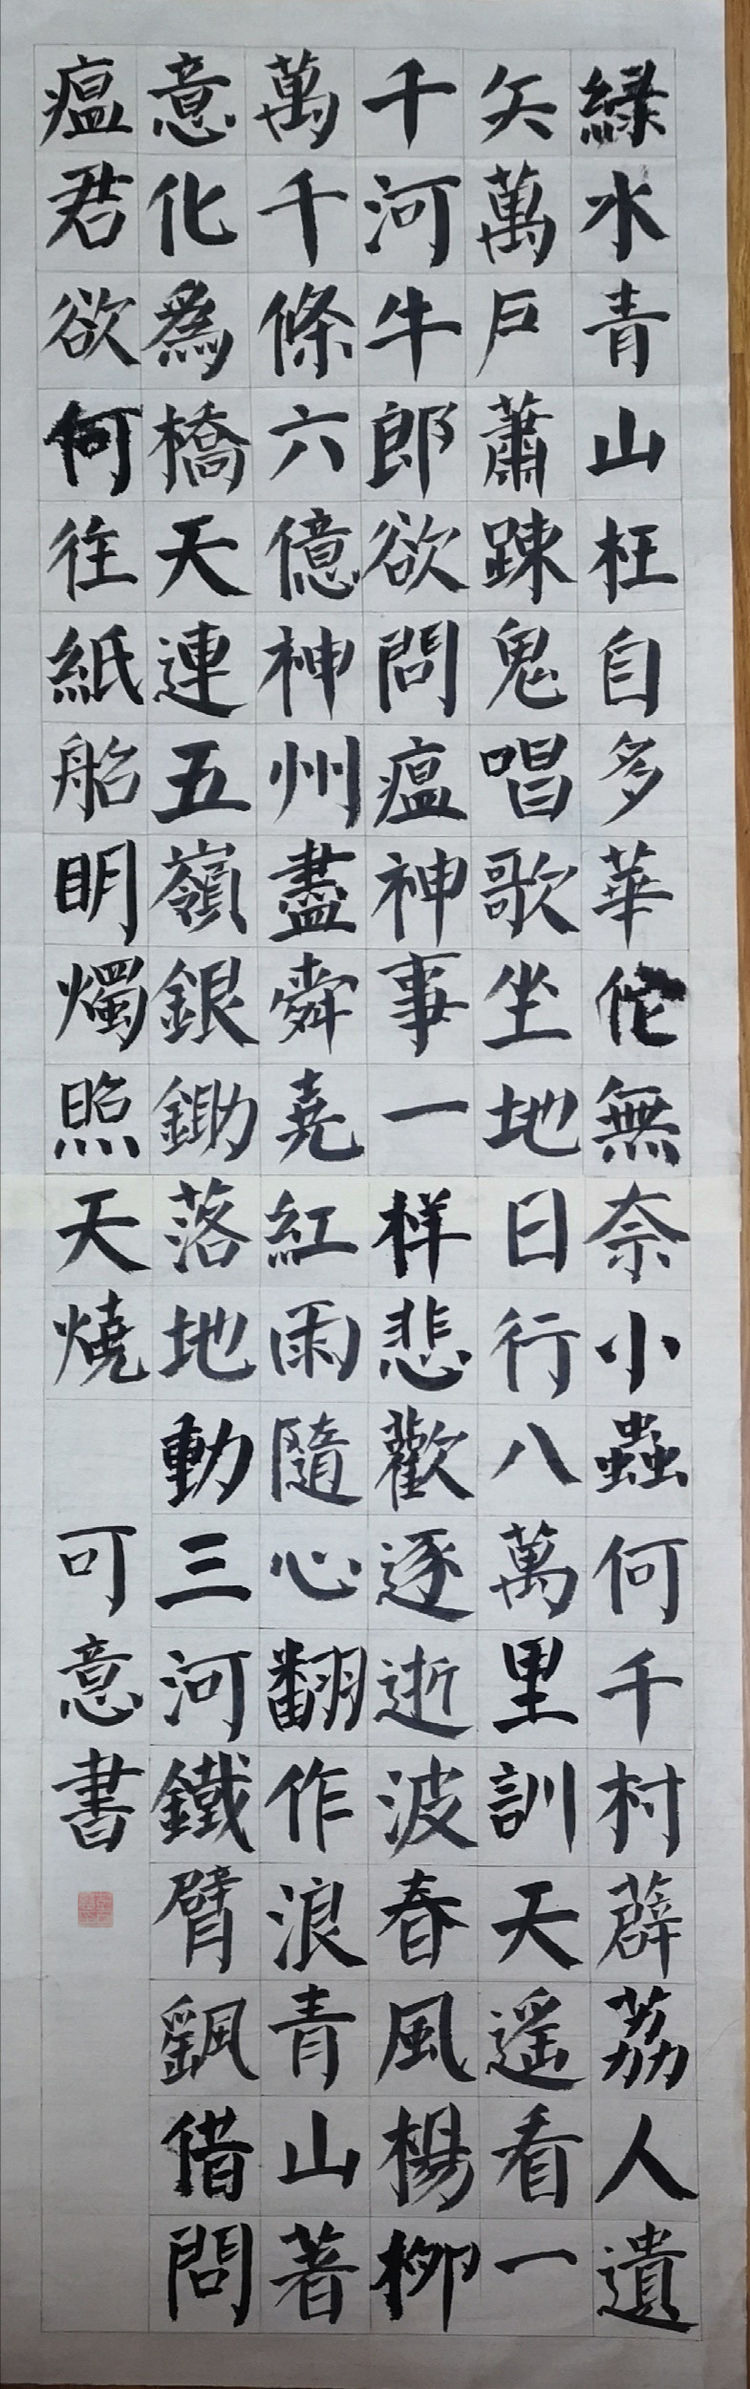 綠水青山枉自多華佗無奈小蟲何千村薜荔人遺
矢萬戶蕭踈鬼唱歌坐地日行八萬里訓天遥看一
千河牛郎欲問瘟神事一样悲歡逐逝波春風楊柳
萬千條六億神州盡舜堯紅雨隨心翻作浪青山著
意化為橋天連五嶺銀鋤落地動三河鐵臂飄借問
瘟君欲何往紙船明燭照天燒
可意書